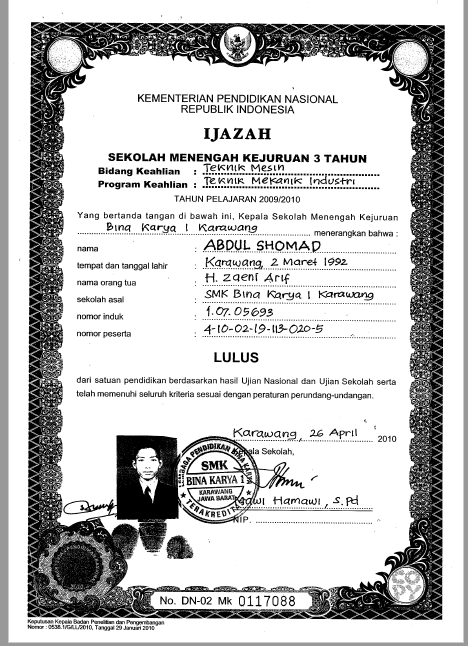 KEMENTERIAN PENDIDIKAN NASIONAL
REPUBLIK INDONESIA
IJAZAH
SEKOLAH MENENGAH KEJURUAN 3 TAHUN
Bidang Keahlian : Teknik Mesin
Program Keahlian : Teknik Mekanik Industri
TAHUN PELAJARAN 2009/2010
Yang bertanda tangan di bawah ini, Kepala Sekolah Menengah Kejuruan
Bina Karya 1 Karawang menerangkan bahwa :
nama : ABDUL SHOMAD
tempat dan tanggal lahir : Karawang, 2 Maret 1992
nama orang tua : H. Zaeni Arif
sekolah asal : SMK Bina Karya 1 Karawang
nomor induk : 1.07.05693
nomor peserta : 4-10-02-19-113-020-5
LULUS
dari satuan pendidikan berdasarkan hasil Ujian Nasional dan Ujian Sekolah serta
telah memenuhi seluruh kriteria sesuai dengan peraturan perundang-undangan.
Karawang, 26 April 2010
Kepala Sekolah,
LEMBAGA PENDIDIKAN BINA KARYA
SMK
BINA KARYA 1
KARAWANG
JAWA BARAT
TERAKREDITASI
Hamawi, S.Pd
NIP.
No. DN-02 Mk 0117088
Keputusan Kepala Badan Penelitian dan Pengembangan
Nomor : 0538.1/G/LL/2010, Tanggal 29 Januari 2010